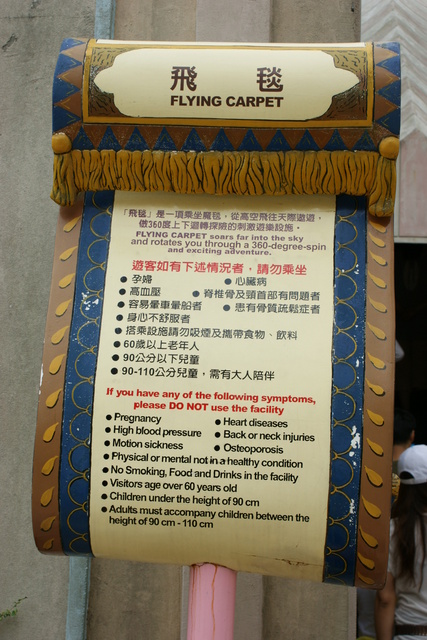 飛毯
FLYING CARPET
「飛毯」是一項乘坐魔毯，從高空飛往天際遨遊，
做360度上下迴轉探險的刺激遊樂設施。
FLYING CARPET soars far into the sky
and rotates you through a 360-degree-spin
and exciting adventure.
遊客如有下述情況者，請勿乘坐
● 孕婦 ● 心臟病
● 高血壓 ● 脊椎骨及頸首部有問題者
● 容易暈車暈船者 ● 患有骨質疏鬆症者
● 身心不舒服者
● 搭乘設施請勿吸煙及攜帶食物、飲料
● 60歲以上老年人
● 90公分以下兒童
● 90-110公分兒童，需有大人陪伴
If you have any of the following symptoms,
please DO NOT use the facility
● Pregnancy ● Heart diseases
● High blood pressure ● Back or neck injuries
● Motion sickness ● Osteoporosis
● Physical or mental not in a healthy condition
● No Smoking, Food and Drinks in the facility
● Visitors age over 60 years old
● Children under the height of 90 cm
● Adults must accompany children between the
height of 90 cm - 110 cm